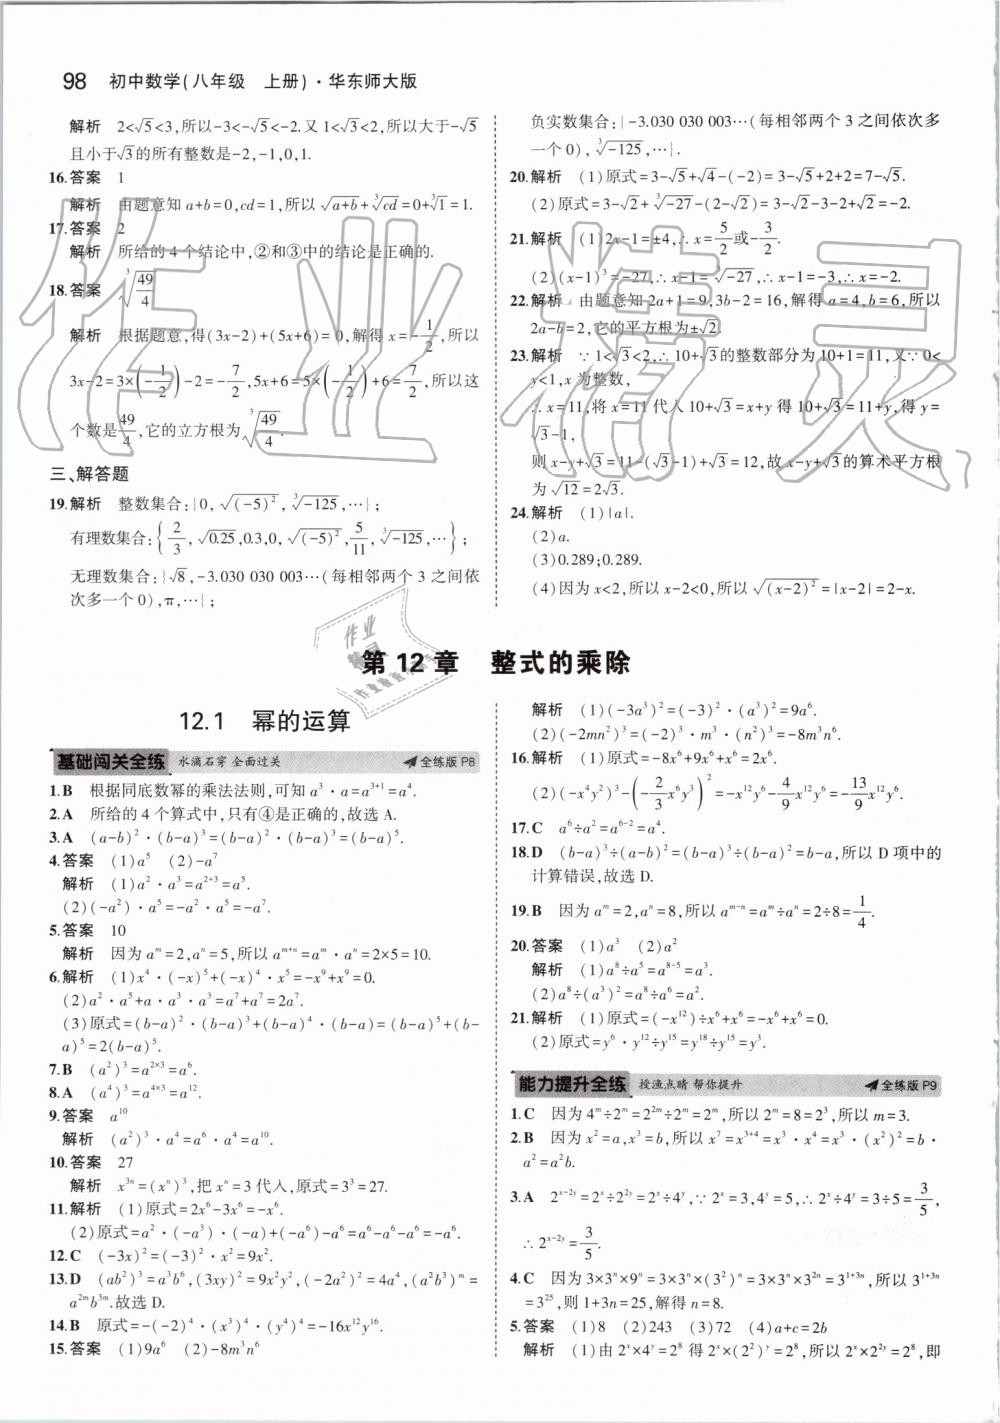 98 初中数学(八年级 上册)·华东师大版
解析 2<√5<3,所以-3<-√5<-2.又1<√3<2,所以大于-√5
且小于√3的所有整数是-2,-1,0,1.
16.答案 1
解析 由题意知a+b=0,cd=1,所以√(a+b)+∛(cd)=0+∛1=1.
17.答案 2
解析 所给的4个结论中,②和③中的结论是正确的.
18.答案 ∛(49/4)
解析 根据题意,得(3x-2)+(5x+6)=0,解得x=-1/2,所以
3x-2=3×(-1/2)-2=-7/2,5x+6=5×(-1/2)+6=7/2,所以这
个数是49/4,它的立方根为∛(49/4).
三、解答题
19.解析 整数集合:{0,√(-5)²,∛-125,…};
有理数集合:{2/3,√0.25,0.3,0,√(-5)²,5/11,∛-125,…};
无理数集合:{√8,-3.030 030 003…(每相邻两个3之间依
次多一个0),π,…};
负实数集合:{-3.030 030 003…(每相邻两个3之间依次多
一个0),∛-125,…}.
20.解析 (1)原式=3-√5+√4-(-2)=3-√5+2+2=7-√5.
(2)原式=3-√2+∛-27-(2-√2)=3-√2-3-2+√2=-2.
21.解析 (1)2x-1=±4,∴x=5/2或-3/2.
(2)(x-1)³=-27,∴x-1=∛-27,∴x-1=-3,∴x=-2.
22.解析 由题意知2a+1=9,3b-2=16,解得a=4,b=6,所以
2a-b=2,它的平方根为±√2.
23.解析 ∵1<√3<2,∴10+√3的整数部分为10+1=11,又∵0<
y<1,x为整数,
∴x=11,将x=11代入10+√3=x+y得10+√3=11+y,得y=
√3-1,
则x-y+√3=11-(√3-1)+√3=12,故x-y+√3的算术平方根
为√12=2√3.
24.解析 (1)|a|.
(2)a.
(3)0.289;0.289.
(4)因为x<2,所以x-2<0,所以√(x-2)²=|x-2|=2-x.
第12章 整式的乘除
12.1 幂的运算
基础闯关全练 水滴石穿 全面过关 全练版P8
1.B 根据同底数幂的乘法法则,可知a³·a=a³⁺¹=a⁴.
2.A 所给的4个算式中,只有④是正确的,故选A.
3.A (a-b)²·(b-a)³=(b-a)²·(b-a)³=(b-a)⁵.
4.答案 (1)a⁵ (2)-a⁷
解析 (1)a²·a³=a²⁺³=a⁵.
(2)(-a²)·a⁵=-a²·a⁵=-a⁷.
5.答案 10
解析 因为aᵐ=2,aⁿ=5,所以aᵐ⁺ⁿ=aᵐ·aⁿ=2×5=10.
6.解析 (1)x⁴·(-x)⁵+(-x)⁴·x⁵=-x⁹+x⁹=0.
(2)a²·a⁵+a·a³·a³=a⁷+a⁷=2a⁷.
(3)原式=(b-a)²·(b-a)³+(b-a)⁴·(b-a)=(b-a)⁵+(b-
a)⁵=2(b-a)⁵.
7.B (a²)³=a²ˣ³=a⁶.
8.A (a⁴)³=a⁴ˣ³=a¹².
9.答案 a¹⁰
解析 (a²)³·a⁴=a⁶·a⁴=a¹⁰.
10.答案 27
解析 x³ⁿ=(xⁿ)³,把xⁿ=3代入,原式=3³=27.
11.解析 (1)原式=2x⁶-3x⁶=-x⁶.
(2)原式=a²·(-a³)·(-a)+(-a⁶)-a⁶=a⁶-a⁶-a⁶=-a⁶.
12.C (-3x)²=(-3)²·x²=9x².
13.D (ab²)³=a³b⁶,(3xy)²=9x²y²,(-2a²)²=4a⁴,(a²b³)ᵐ=
a²ᵐb³ᵐ.故选D.
14.B 原式=-(-2)⁴·(x³)⁴·(y⁴)⁴=-16x¹²y¹⁶.
15.答案 (1)9a⁶ (2)-8m³n⁶
解析 (1)(-3a³)²=(-3)²·(a³)²=9a⁶.
(2)(-2mn²)³=(-2)³·m³·(n²)³=-8m³n⁶.
16.解析 (1)原式=-8x⁶+9x⁶+x⁶=2x⁶.
(2)(-x⁴y²)³-(-2/3x⁶y³)²=-x¹²y⁶-4/9x¹²y⁶=-13/9x¹²y⁶.
17.C a⁶÷a²=a⁶⁻²=a⁴.
18.D (b-a)³÷(a-b)²=(b-a)³÷(b-a)²=b-a,所以D项中的
计算错误,故选D.
19.B 因为aᵐ=2,aⁿ=8,所以aᵐ⁻ⁿ=aᵐ÷aⁿ=2÷8=1/4.
20.答案 (1)a³ (2)a²
解析 (1)a⁸÷a⁵=a⁸⁻⁵=a³.
(2)a⁸÷(a³)²=a⁸÷a⁶=a².
21.解析 (1)原式=(-x¹²)÷x⁶+x⁶=-x⁶+x⁶=0.
(2)原式=y⁶·y¹²÷y¹⁵=y¹⁸÷y¹⁵=y³.
能力提升全练 授渔点睛 帮你提升 全练版P9
1.C 因为4ᵐ÷2ᵐ=2²ᵐ÷2ᵐ=2ᵐ,所以2ᵐ=8=2³,所以m=3.
2.B 因为x²=a,x³=b,所以x⁷=x³⁺⁴=x³·x⁴=x³·(x²)²=b·
a²=a²b.
3.A 2ˣ⁻²ʸ=2ˣ÷2²ʸ=2ˣ÷4ʸ,∵2ˣ=3,4ʸ=5,∴2ˣ÷4ʸ=3÷5=3/5,
∴2ˣ⁻²ʸ=3/5.
4.C 因为3×3ⁿ×9ⁿ=3×3ⁿ×(3²)ⁿ=3×3ⁿ×3²ⁿ=3¹⁺³ⁿ,所以3¹⁺³ⁿ
=3²⁵,则1+3n=25,解得n=8.
5.答案 (1)8 (2)243 (3)72 (4)a+c=2b
解析 (1)由2ˣ×4ʸ=2⁸得2ˣ×(2²)ʸ=2⁸,所以2ˣ×2²ʸ=2⁸,即
作业精灵